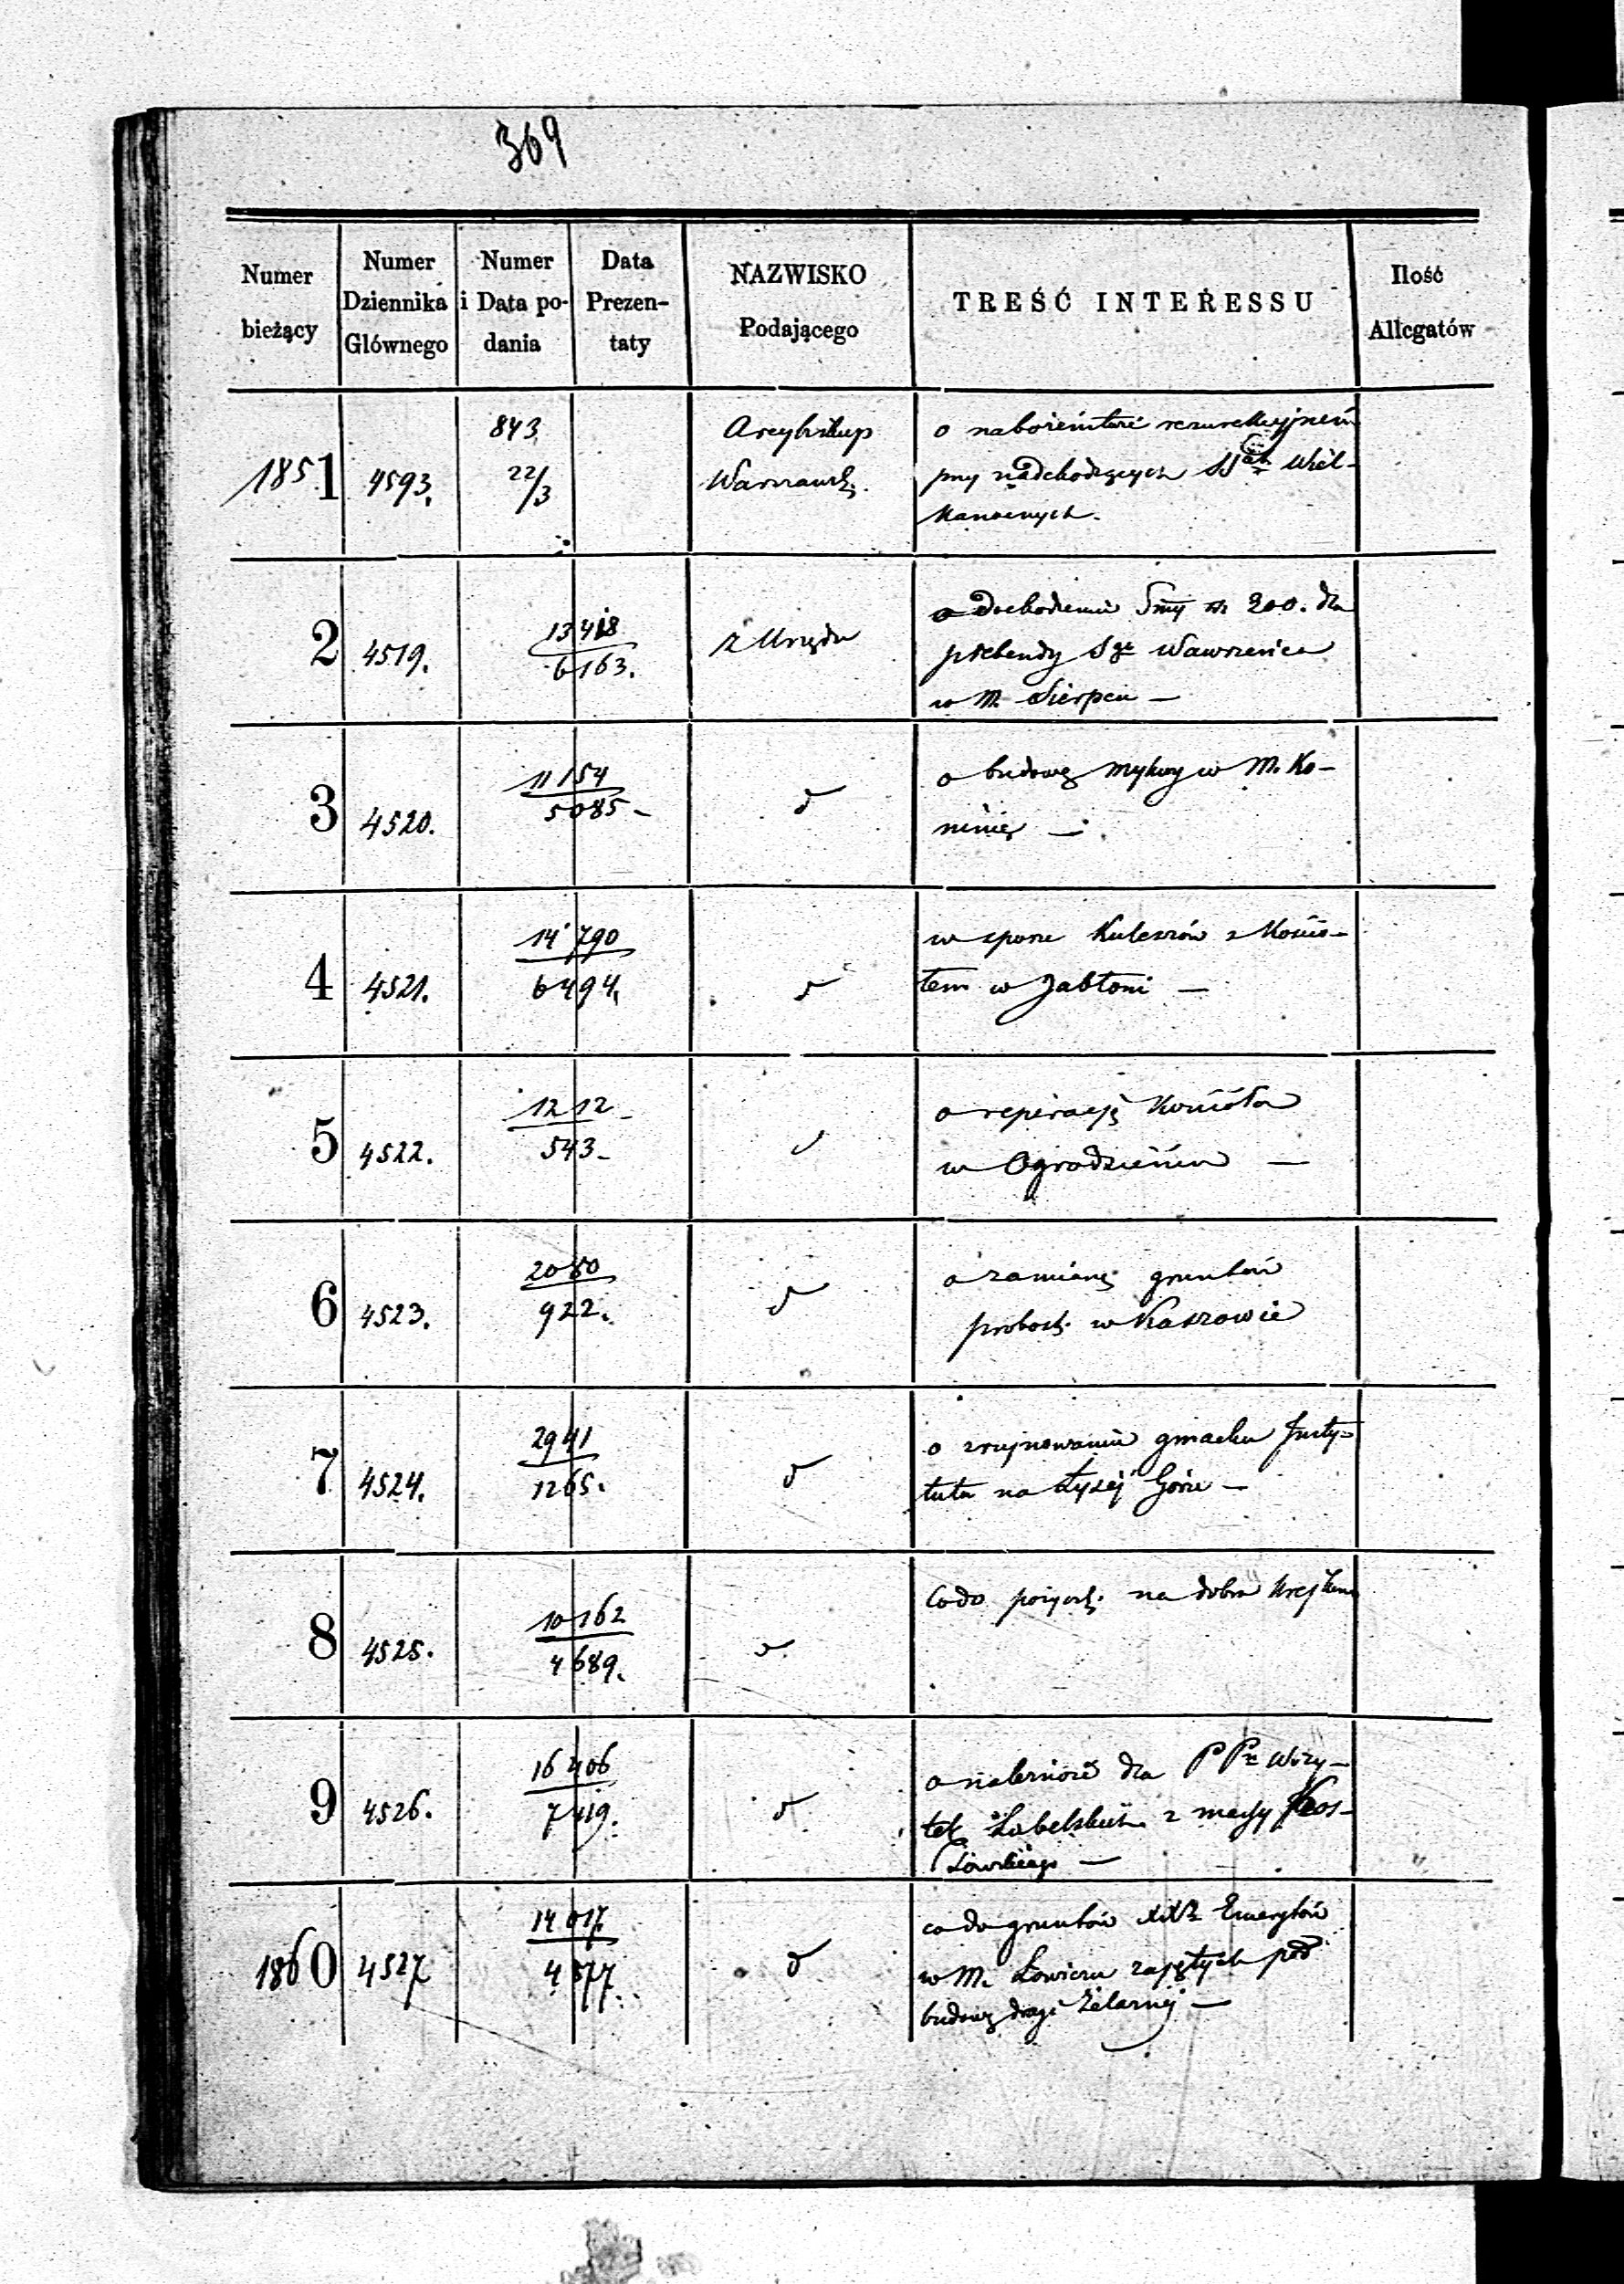 369
Numer bieżący
Numer Dziennika Głównego
Numer i Data podania
Data Prezentaty
NAZWISKO Podającego
TREŚĆ INTERESSU
Ilość Allegatów
1851 4593. 843 22/3 Arcybiskup
Warszawsk.
o nabożeństwie rezurekcyjnem
przy nadchodzących SSach Wiel-
kanocnych.
2 4519. 13418
6163. z Urzędu
o dochodzeniu Smy rs 200. dla
prebendy Sgo Wawrzeńca
w M. Sierpcu —
3 4520. 11154
5085 — d
o budowę mykwy w M. Ko-
ninie —
4 4521. 14790
6494. d
w sporze Kuleszów z Kościo-
łem w Jabłoni —
5 4522. 1212
543 — d
o reperacyę Kościoła
w Ogrodzieńcu —
6 4523. 2080
922. d
o zamianę gruntów
probosk. w Kaszowie
7 4524. 2941
1265. d
o zrujnowaniu gmachu Insty-
tutu na Łysej Górze —
8 4525. 10162
4689. d
Co do pożyczk. na dobra
9 4526. 16406
7419. d
o należność dla PP. Wizy-
tek Lubelskich z massy Kos-
łowskiego —
1860 4527 14017
4577. d
co do gruntów XXży Emerytów
w M. Łowiczu zajętych pod
budowę drogi Żelaznej —